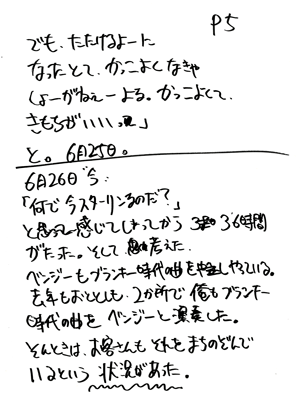 P5
でも、たたけるよーに
なったとて、かっこよくなきゃ
しょーがねぇーよる。かっこよくて、
きもちがいいいっ」
と。6月25日。
6月26日 今:
「何で今スターリンるのだ?」
と思って感じてしまってから 36時間
がたった。そして 考えた.
ベンジーもブランキー時代の曲を やっている。
去年もおととしも、2か所で俺もブランキー
時代の曲を ベンジーと演奏した。
そんときは、お客さんもそれをまちのぞんで
いるという状況があった。